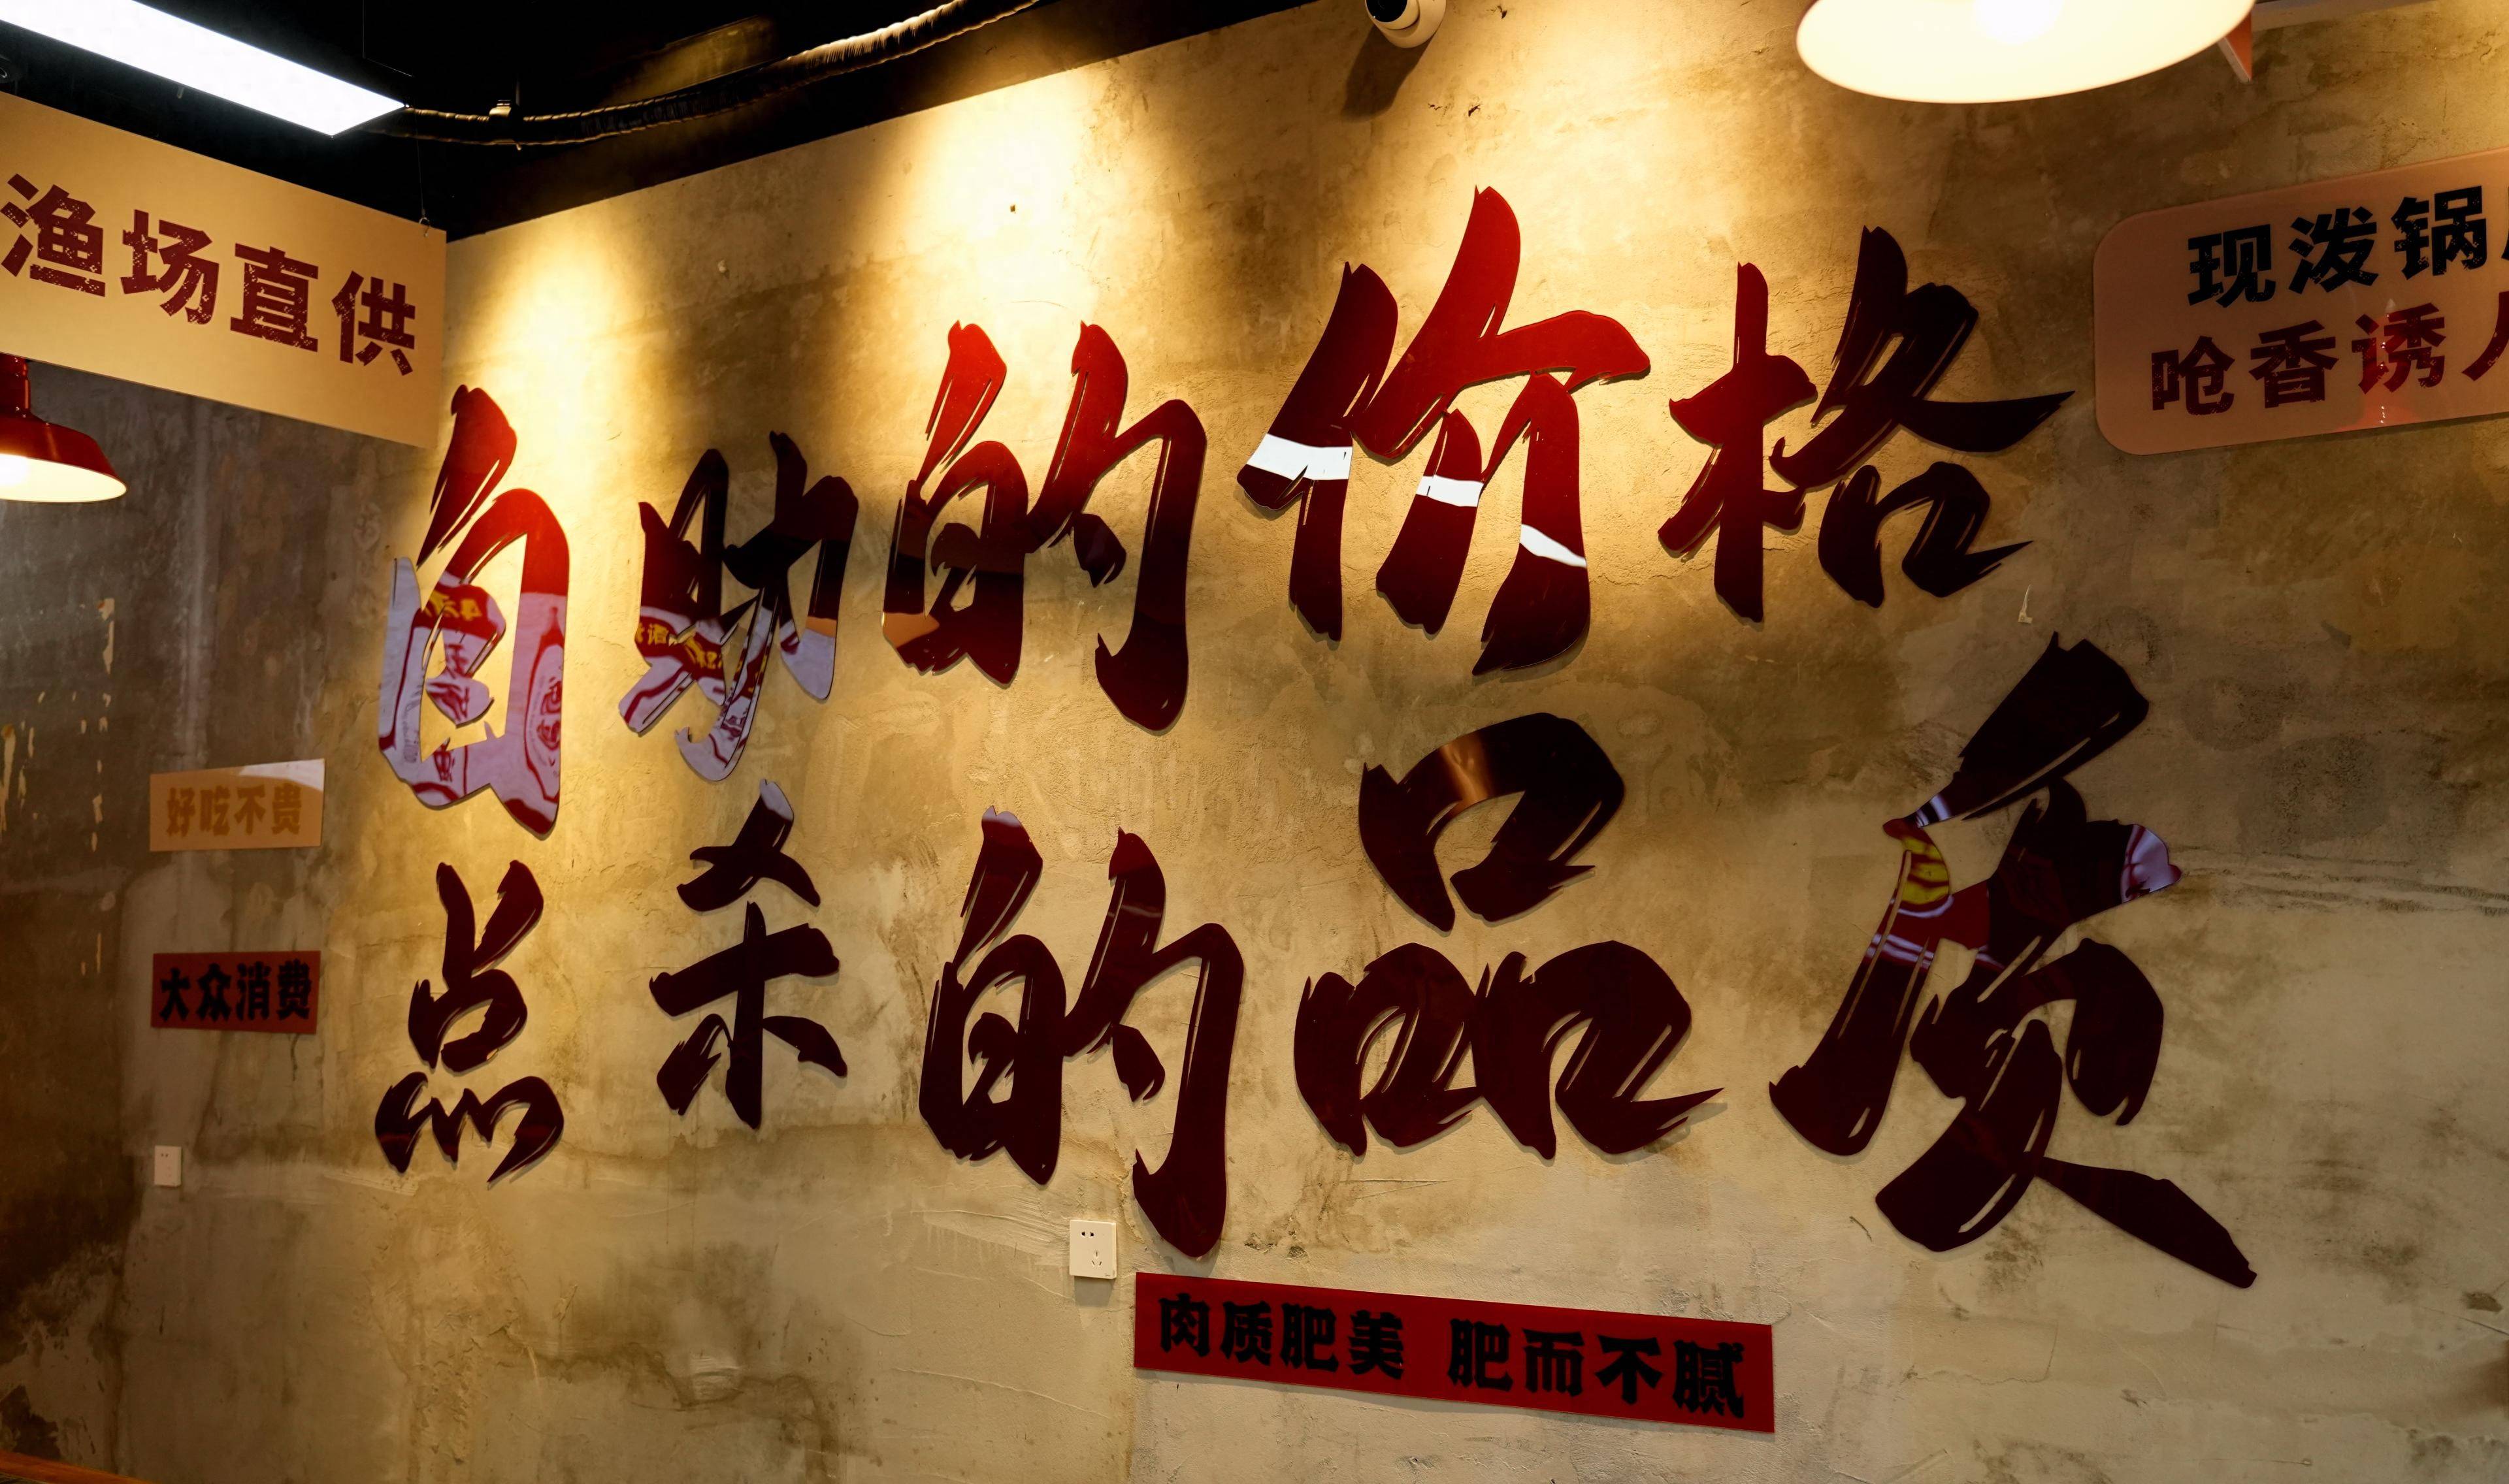 渔场直供
自助的价格
点杀的品质
现泼锅
呛香诱人
好吃不贵
大众消费
肉质肥美 肥而不腻